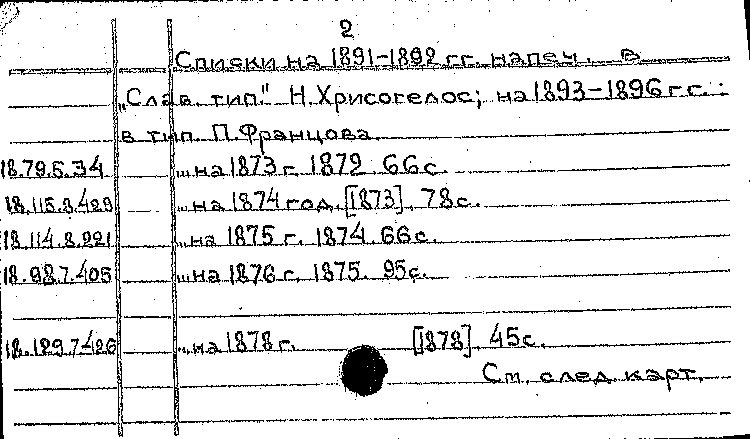 2
Списки на 1891-1892 гг. напеч. в
"Слав. тип." Н.Хрисогелос; на 1893-1896 г.г.:
в тип. П.Францова.
18.79.5.34 ...на 1873 г. 1872. 66 с.
18.115.8.429 ...на 1874 год. [1873]. 78 с.
18.114.8.221 ...на 1875 г. 1874. 66 с.
18.98.7.405 ...на 1876 г. 1875. 95 с.
18.129.7.426 ...на 1878 г. [1878]. 45 с.
См. след. карт.